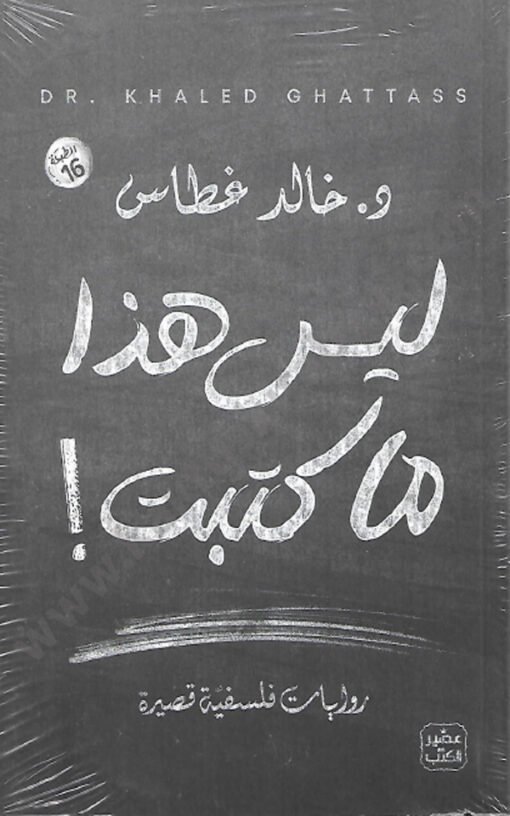 DR. KHALED GHATTASS
الطبعة
16
د. خالد غطاس
ليس هذا
ما كتبت!
روايات فلسفية قصيرة
عصير
الكتب